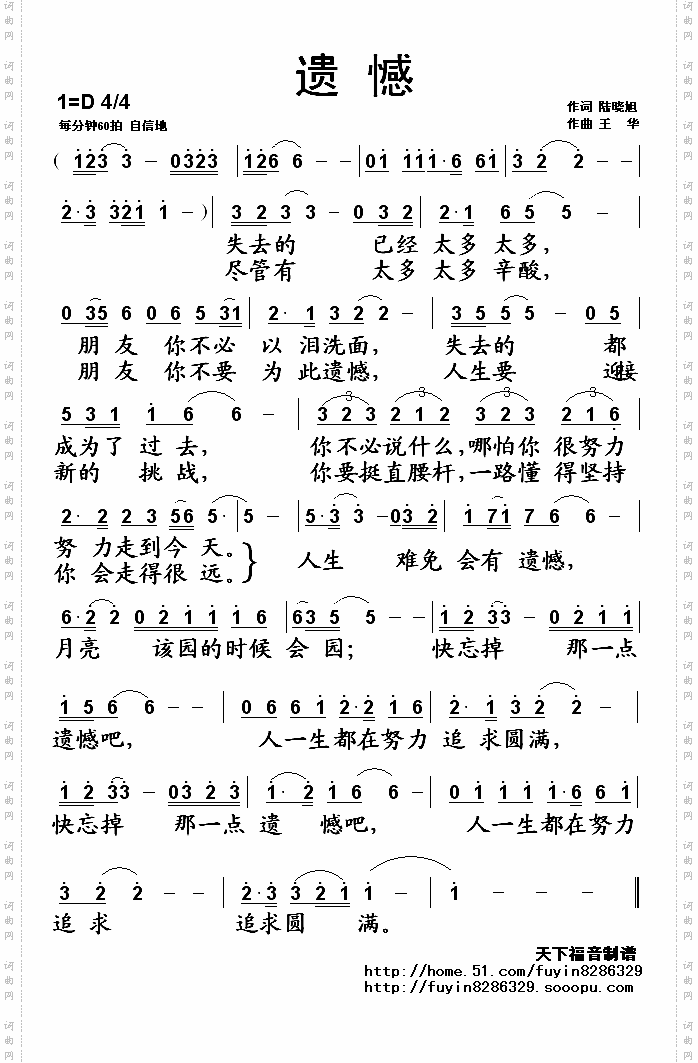 遗 憾
1=D 4/4
作词 陆晓旭
每分钟60拍 自信地
作曲 王 华
( 123 3 - 0323 | 126 6 - - | 01 111·6 61 | 3 2 2 - - |
2·3 321 1 - ) | 3 2 3 3 - 0 3 2 | 2·1 6 5 5 - - |
失去的 已经 太多 太多,
尽管有 太多 太多 辛酸,
0 35 6 0 6 5 31 | 2· 1 3 2 2 - | 3 5 5 5 - 0 5 |
朋 友 你不必 以 泪洗面, 失去的 都
朋 友 你不要 为 此遗憾, 人生要 迎接
3 3 3 3
5 3 1 1 6 6 - | 3 2 3 2 1 2 3 2 3 2 1 6 |
成为了 过 去, 你不必说什么,哪怕你 很努力
新的 挑 战, 你要挺直腰杆,一路懂 得坚持
2· 2 2 3 56 5· | 5 - | 5·3 3 -03 2 | 1 71 7 6 6 - |
努 力走到今 天。
你 会走得很 远。} 人生 难免 会有 遗憾,
6·2 2 0 2 1 1 1 6 | 63 5 5 - - | 1 2 33 - 0 2 1 1 |
月亮 该园的时候 会 园; 快忘掉 那一点
1 5 6 6 - - | 0 6 6 1 2·2 1 6 | 2·1 3 2 2 - |
遗憾吧, 人一生都在努力 追 求圆满,
1 2 33 - 03 2 3 | 1· 2 1 6 6 - | 01 1 1 1·6 6 1 |
快忘掉 那一点 遗 憾吧, 人一生都在努力
3 2 2 - - | 2·3 3 2 1 1 - | 1 - - - ‖
追 求 追求圆 满。
天下福音制谱
http://home.51.com/fuyin8286329
http://fuyin8286329.sooopu.com